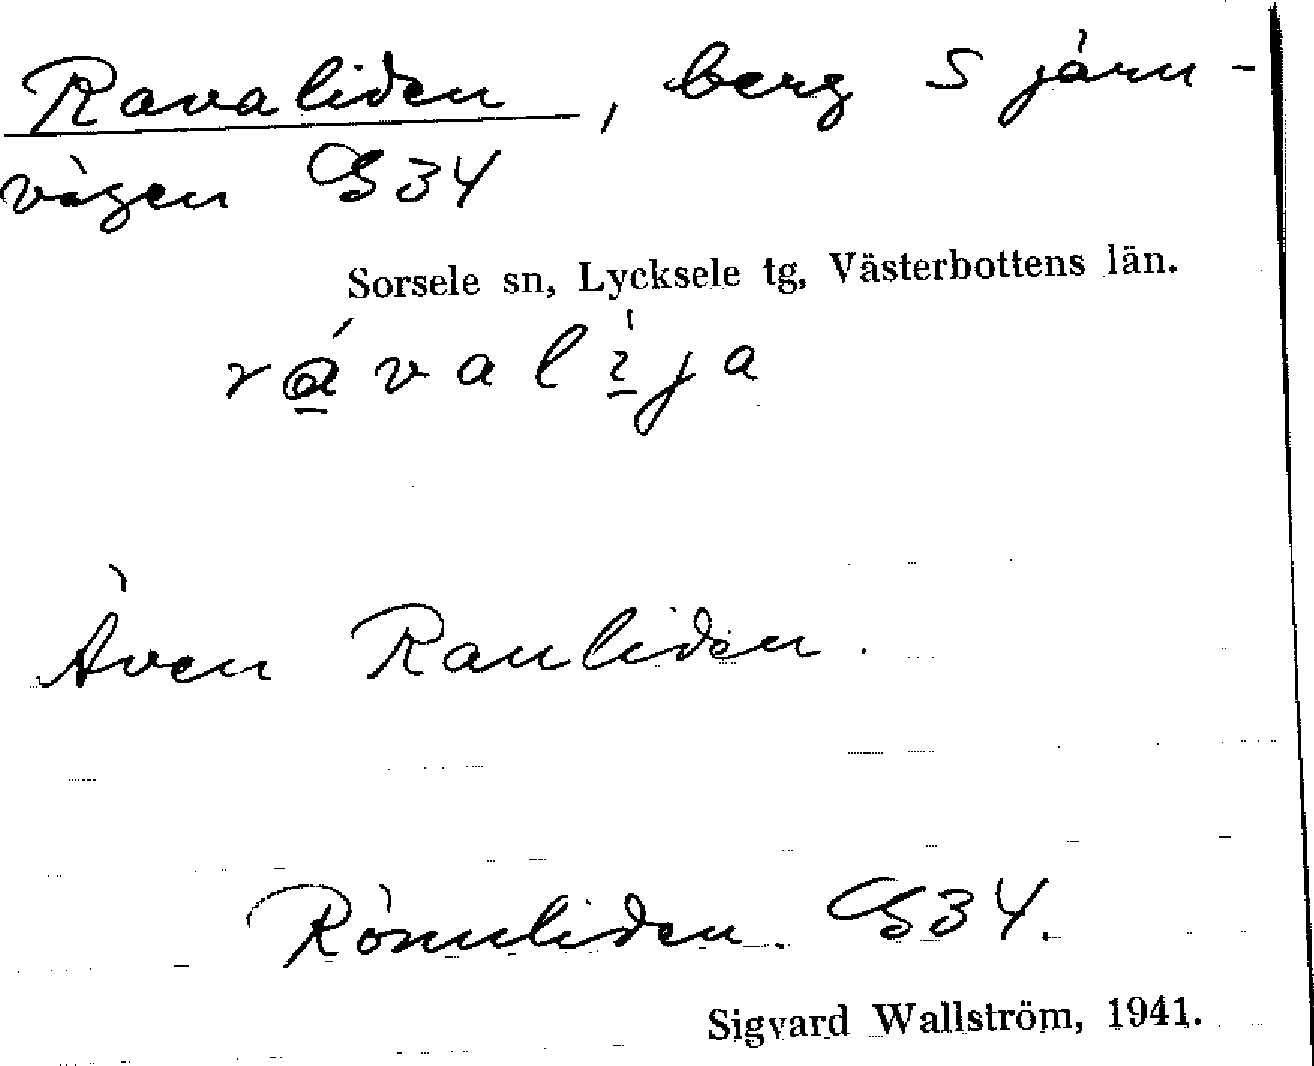 Ravaliden, berg S järn-
vägen G34
Sorsele sn, Lycksele tg, Västerbottens län.
rávalija
Även Rauliden.
Rönnliden. G34.
Sigvard Wallström, 1941.